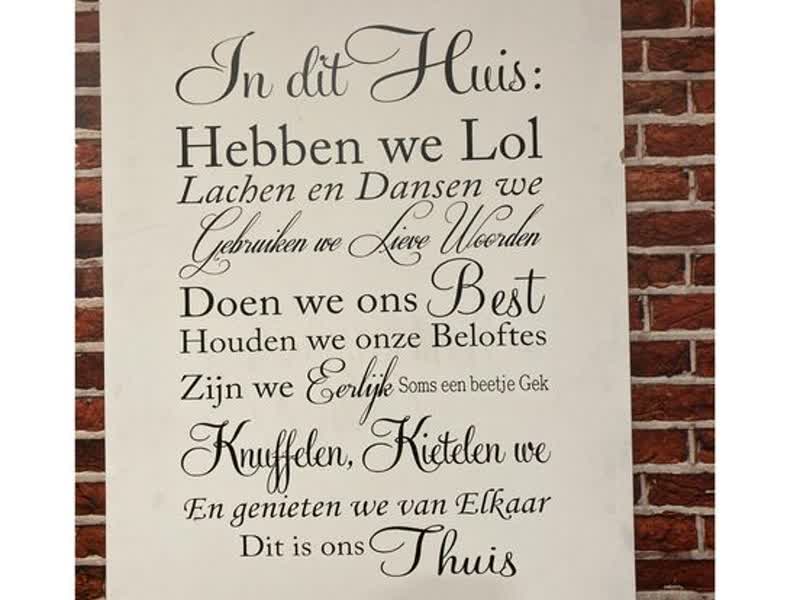 In dit Huis:
Hebben we Lol
Lachen en Dansen we
Gebruiken we Lieve Woorden
Doen we ons Best
Houden we onze Beloftes
Zijn we Eerlijk Soms een beetje Gek
Knuffelen, Kietelen we
En genieten we van Elkaar
Dit is ons Thuis